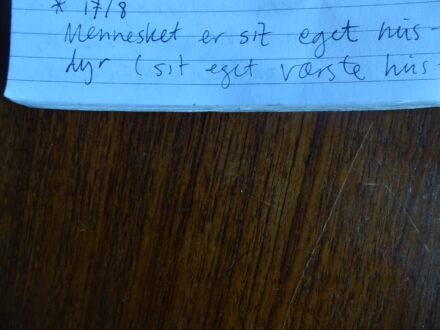 * 17/8
Mennesket er sit eget hus-
dyr (sit eget værste hus-